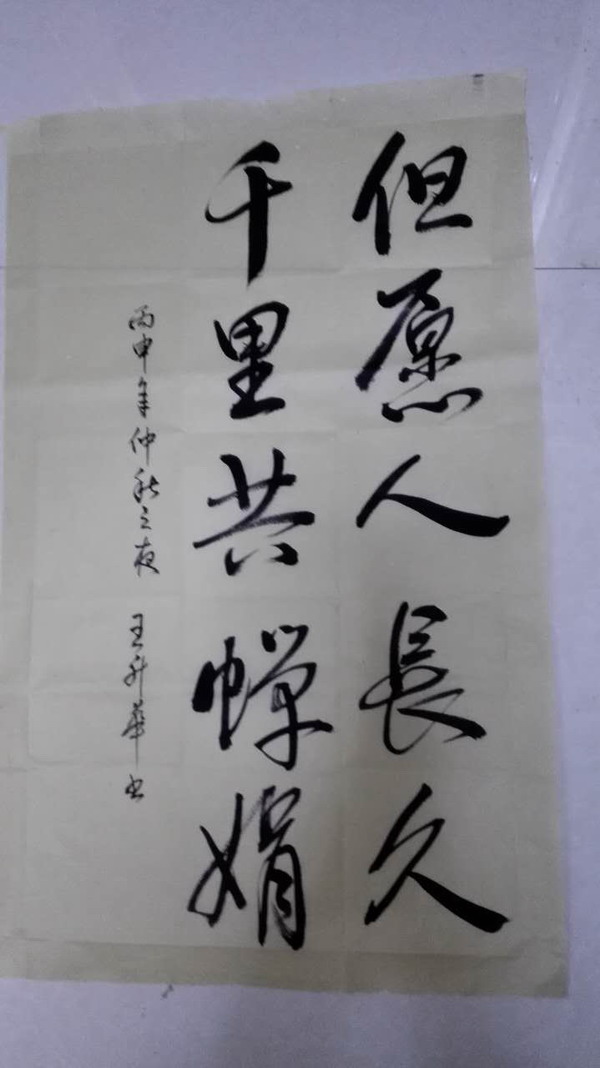 但愿人長久
千里共蝉娟
丙申年仲秋之夜 王升華书